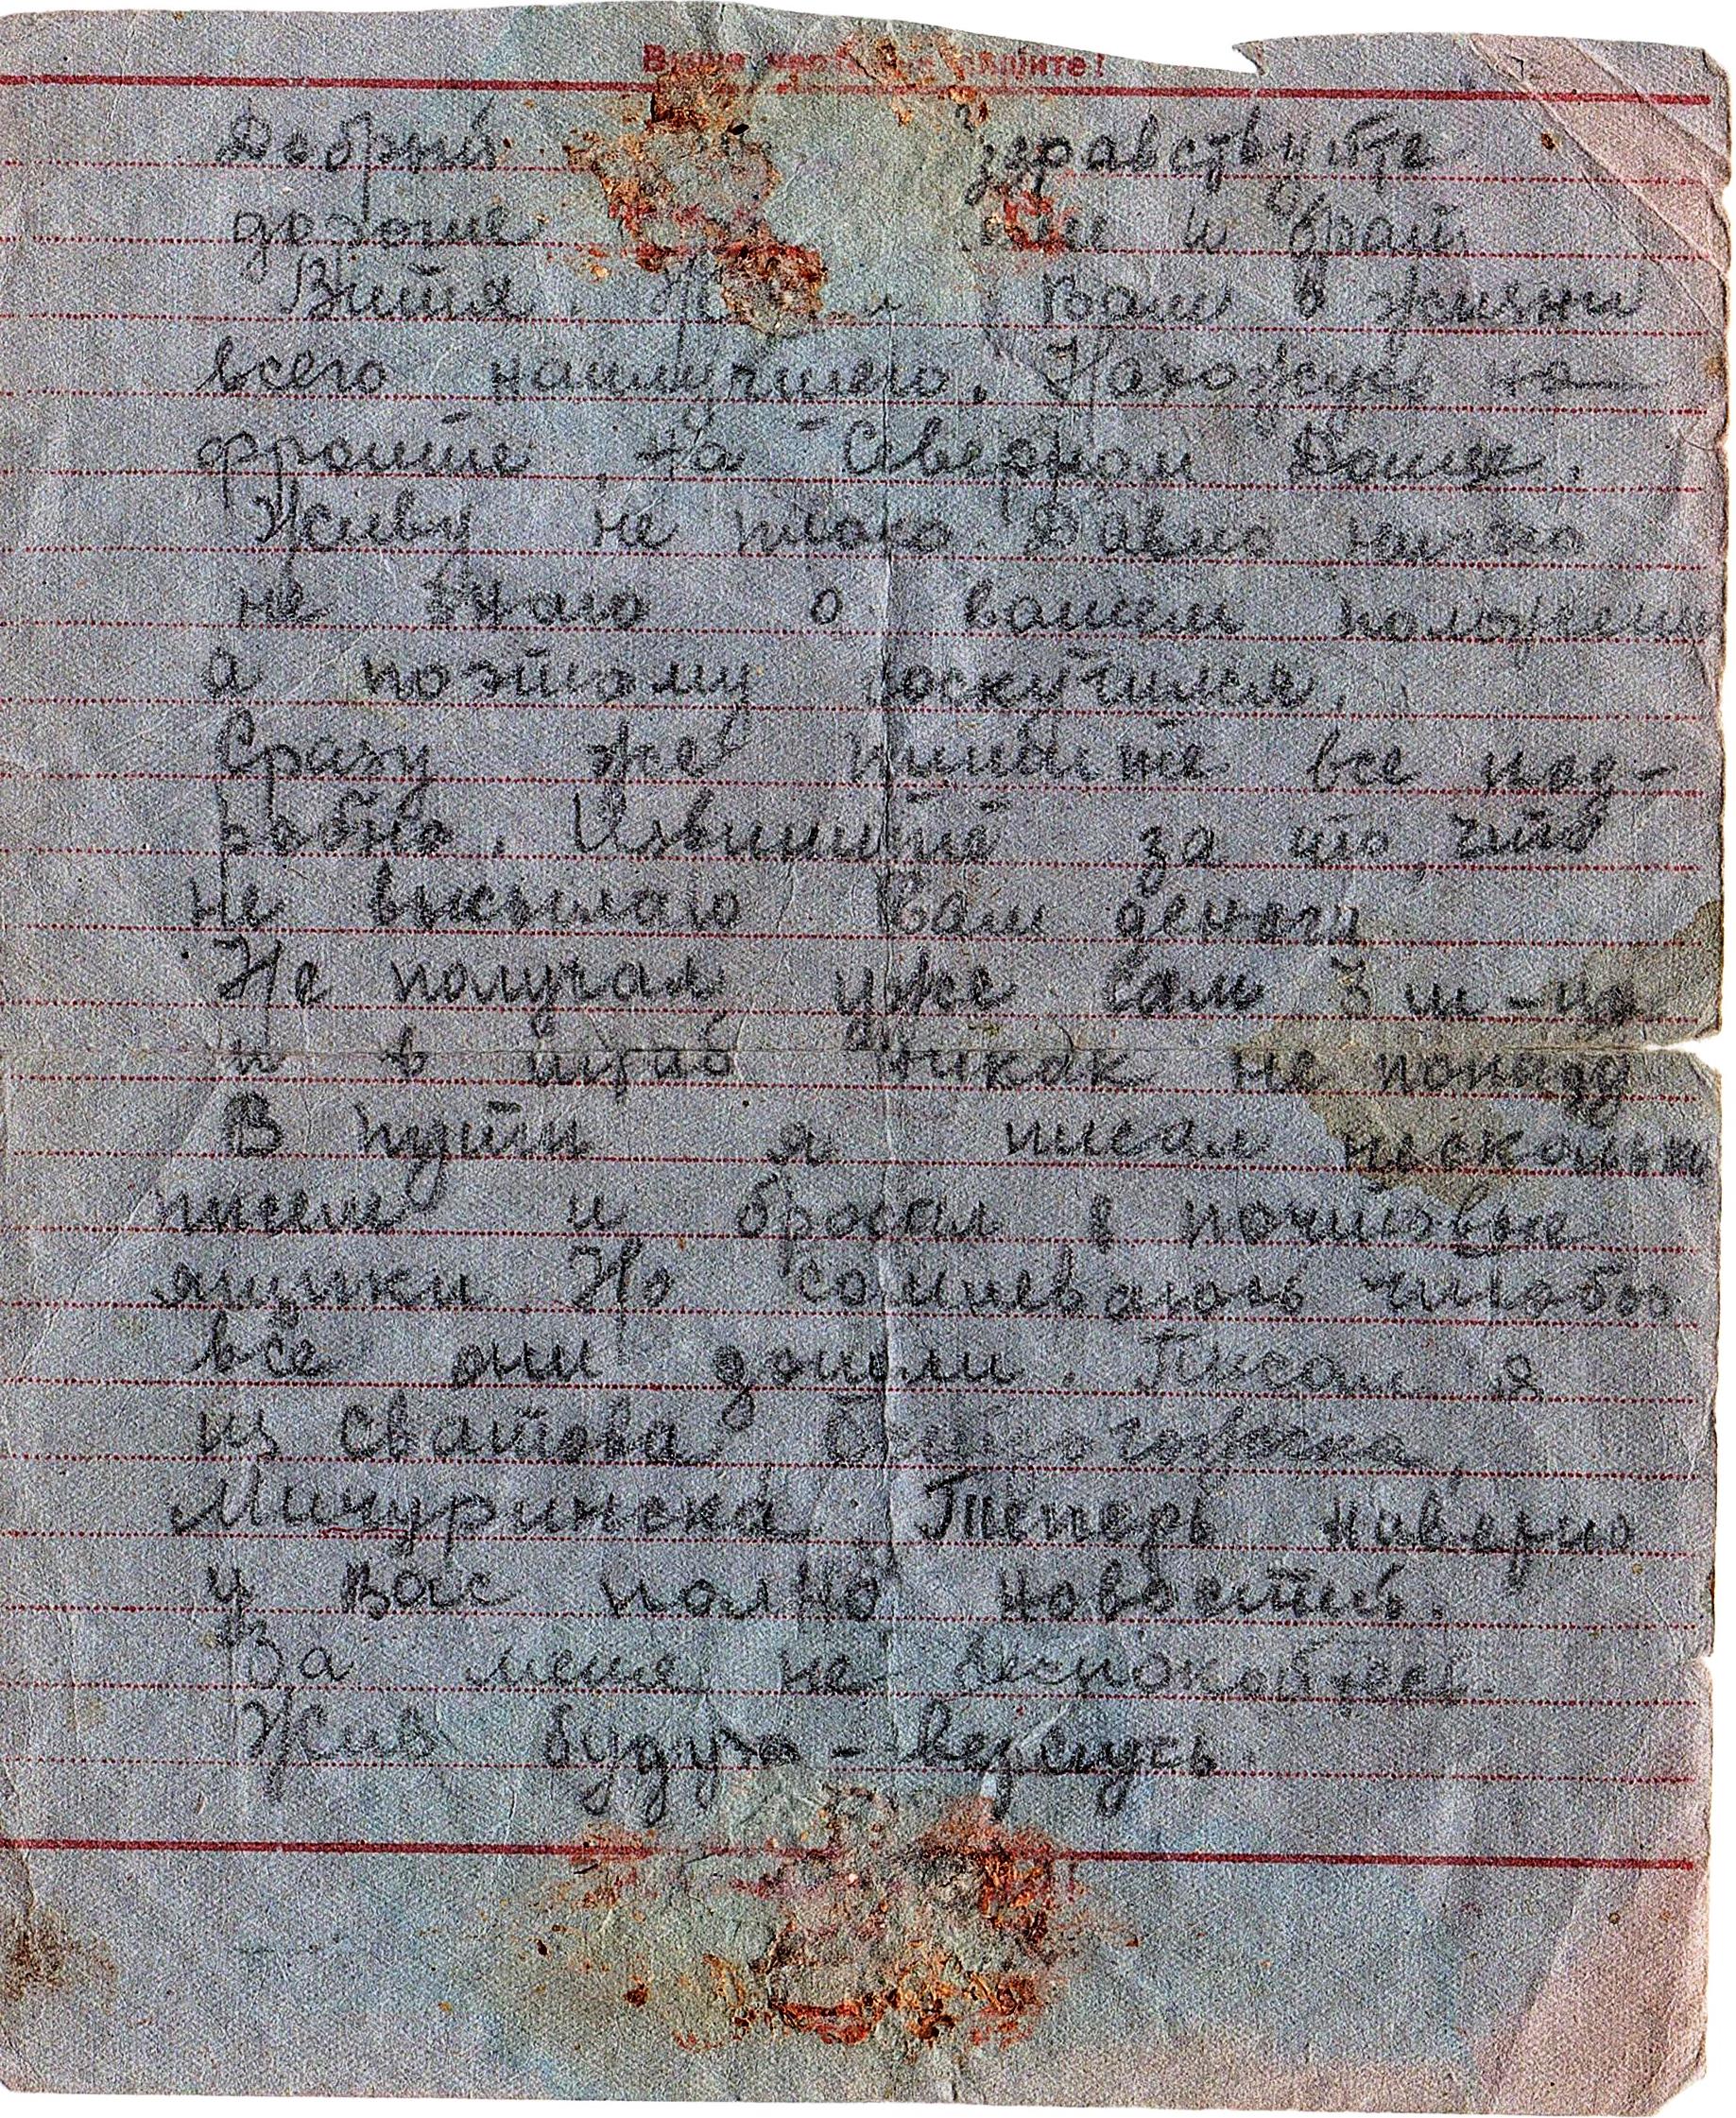 Добрый здравствуйте
дорогие и брат
Витя. Вам в жизни
всего наилучшего. Нахожусь на
фронте на Северном Донце.
Живу не плохо. Давно ничего
не знаю о вашем положении
а поэтому соскучился.
Сразу же пишите все под-
робно. Извините за то, что
не высылаю Вам деньги
Не получал уже сам 3 м-ца
и в штаб никак не попаду
В пути я писал несколько
писем и бросал в почтовые
ящики. Но сомневаюсь чтобы
все они дошли. Писал я
из Сватова
Мичуринска. Теперь наверно
у Вас полно новостей.
За меня не беспокойтесь.
Жив буду – вернусь.